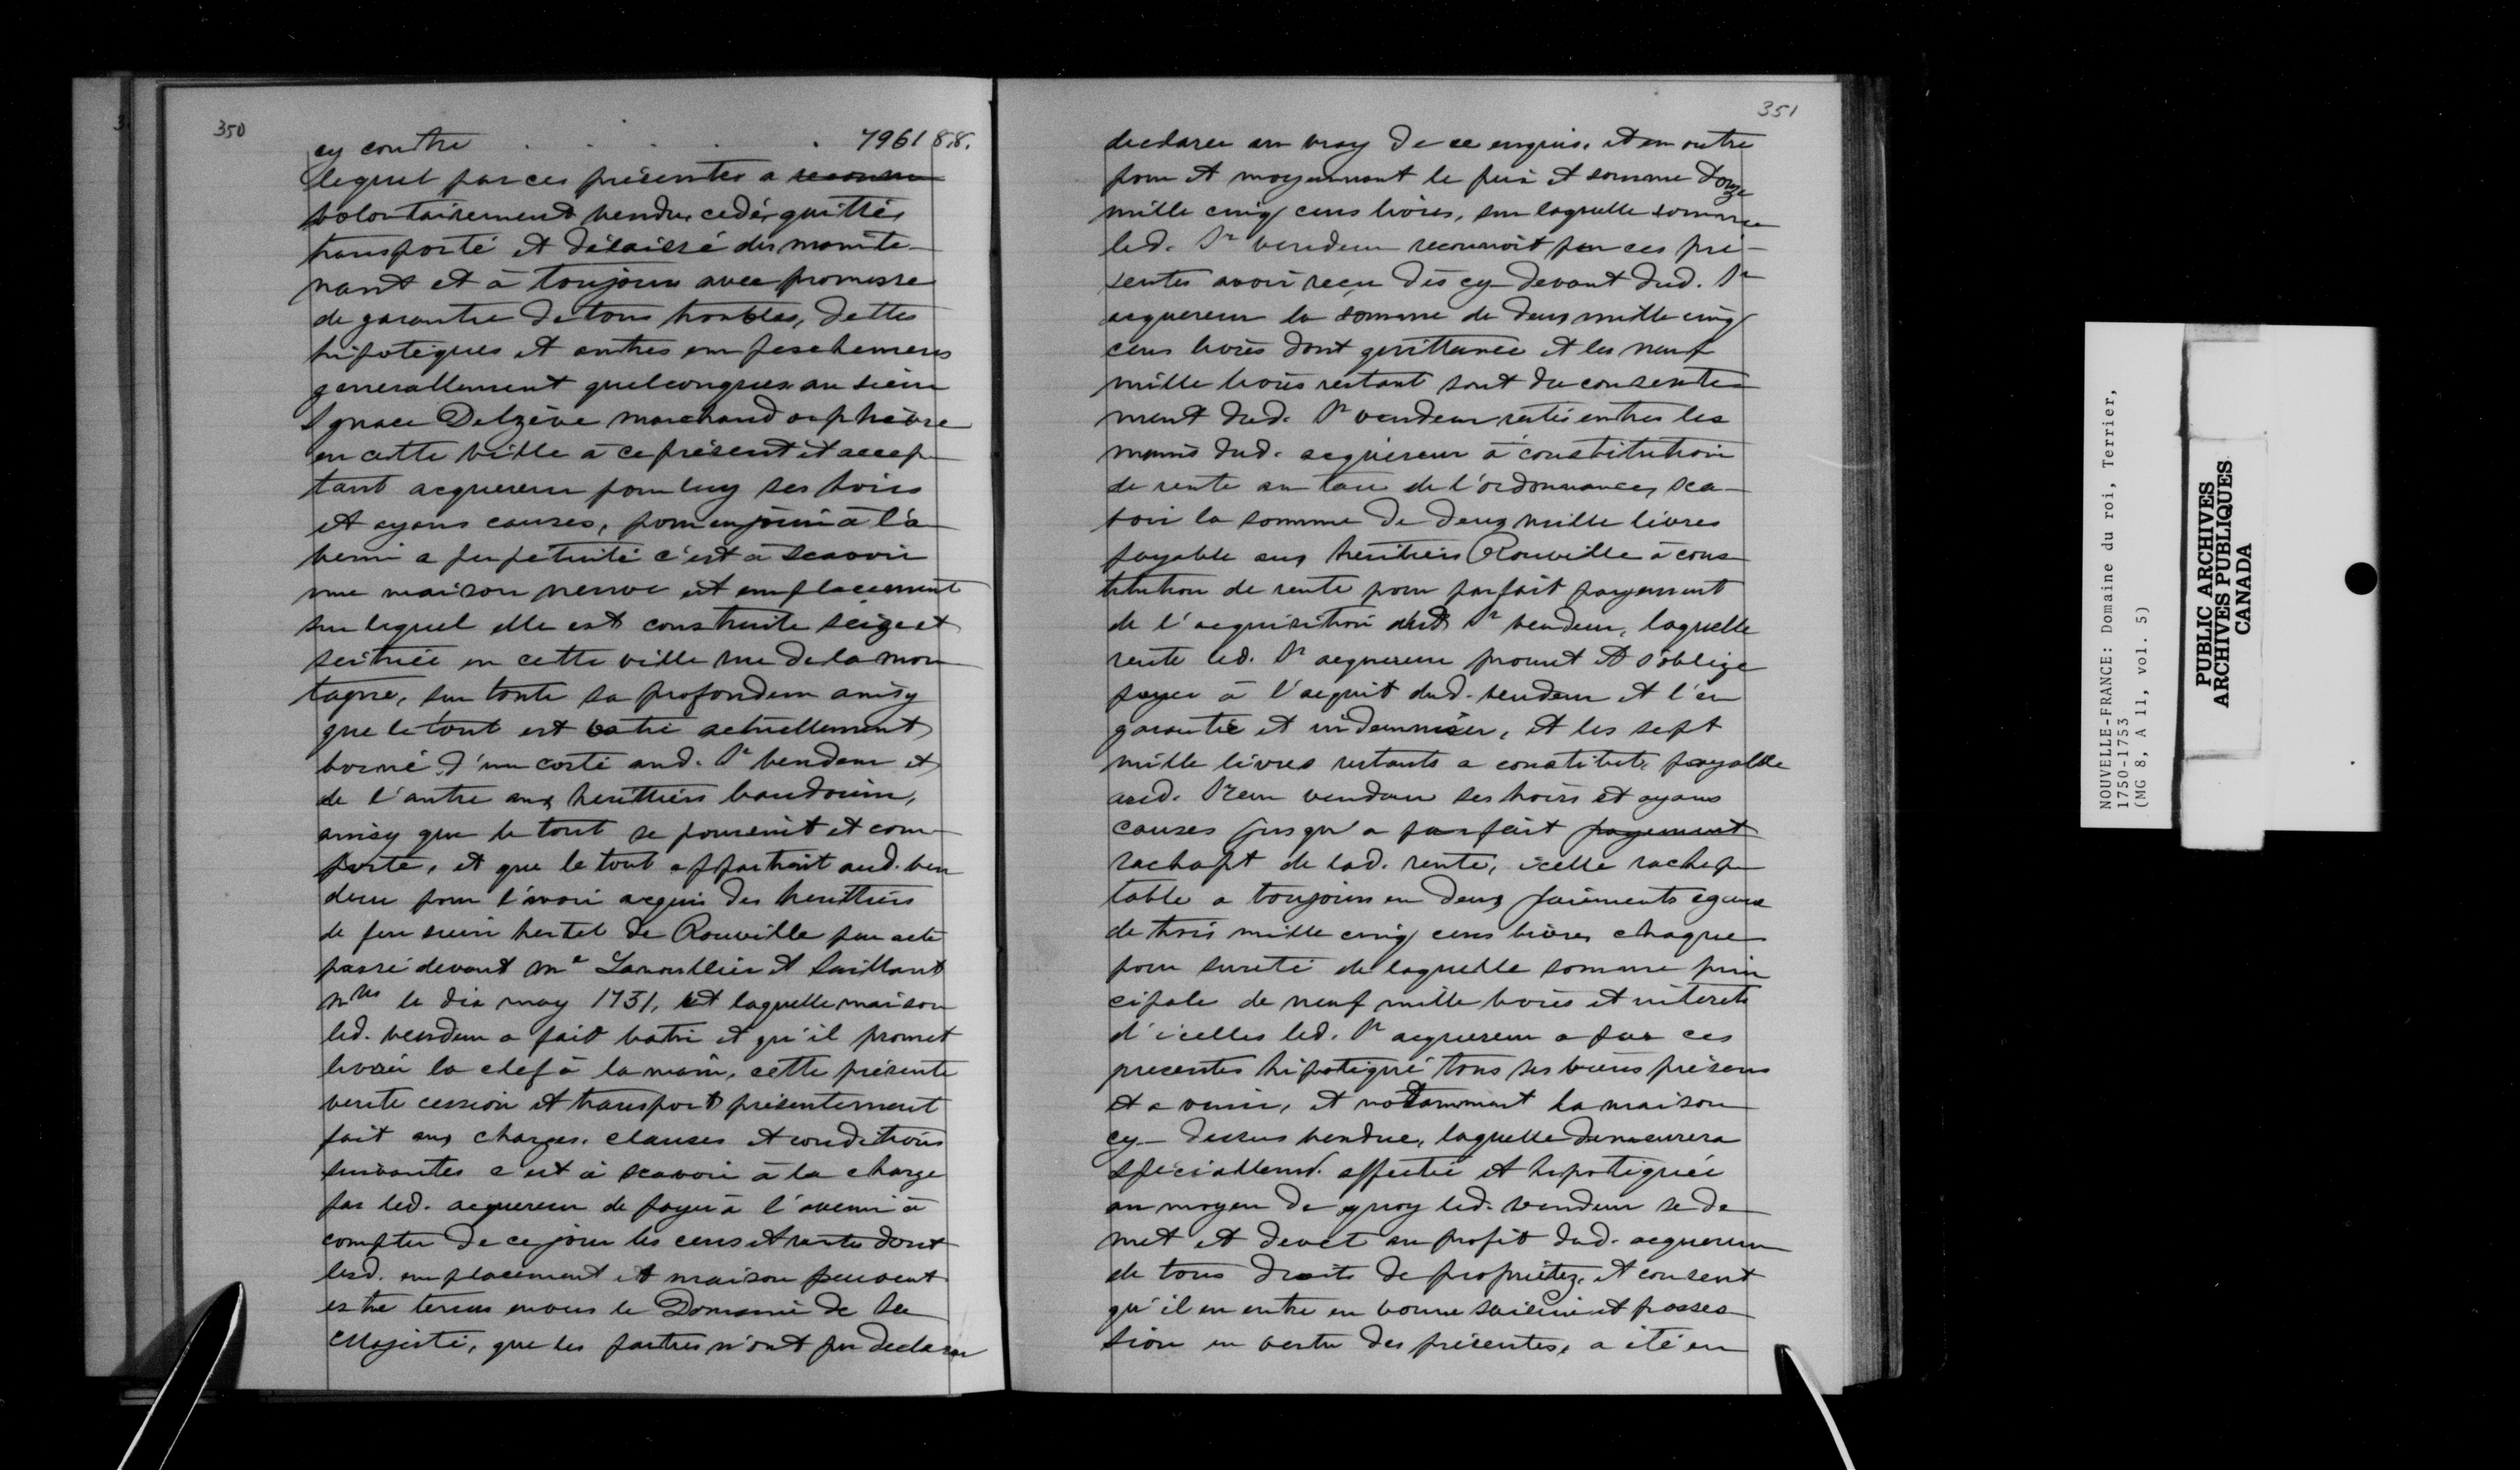 350
cy contre . . . . . 7961 8.8.
lequel par ces présentes a reconnu
volontairement vendu, cedé, quitté,
transporté et délaissé des mainte-
nant et à toujours avec promesse
de garantie de tous troubles, dettes
hipoteques et autres empeschemens
generallement quelconques au sieur
Ignace Delzéne marchand orphèvre
en cette ville à ce présent et accep-
tant acquereur pour luy ses hoirs
et ayans causes, pour en jouir à l'a-
venir a perpetuité c'est à scavoir
une maison neuve et emplacement
sur lequel elle est construite seize et
scituée en cette ville rue de la mon-
tagne, sur toute sa profondeur ainsy
que le tout est bati actuellement
borné d'un costé aud. Sr vendeur et
de l'autre aux heritiers baudouin,
ainsy que le tout se poursuit et com-
porte, et que le tout appartient aud. ven
deur pour l'avoir acquis des heritiers
de feu sieur hertel de Rouville par acte
passé devant Me Lanoullier et Saillant
nres le dix may 1731, et laquelle maison
led. vendeur a fait batir et qu'il promet
livrer la clef à la main, cette présente
vente cession et transport présentement
fait aux charges, clauses et conditions
suivantes c'est à scavoir à la charge
par led. acquereur de payer à l'avenir à
compter de ce jour les cens et rentes dont
lesd. emplacement et maison peuvent
estre tenus envers le Domaine de Sa
Majesté, que les parties n'ont pu declarer
351
declarer au vray de ce enquis, et en outre
pour et moyennant le prix et somme d'onze
mille cinq cens livres, sur laquelle somme
led. Sr vendeur reconnoit par ces pré-
sentes avoir recu des cy-devant dud. Sr
acquereur la somme de deux mille cinq
cens livres dont quittance et les neuf
mille livres restant sont du consente-
ment dud. Sr vendeur restés entres les
mains dud. acquéreur à constitution
de rente au taux de l'ordonnance, sca-
voir la somme de deux mille livres
payable aux heritiers Rouville à cons-
titution de rente pour parfait payement
de l'acquisition dud. Sr vendeur, laquelle
rente led. Sr acquereur promet et s'oblige
payer à l'acquit dud. vendeur et l'en
garantir et indemniser, et les sept
mille livres restants a constitut. payable
aud. Sieur vendeur ses hoirs et ayans
causes jusqu'a parfait payement
rachapt de lad. rente, icelle rachep-
table a toujours en deux paiements egaux
de trois mille cinq cens livres chaque
pour sureté de laquelle somme prin
cipale de neuf mille livres et interets
d'icelles led. Sr acquereur a par ces
presentes hipotéqué tous ses biens présens
et a venir, et notamment la maison
cy-dessus vendue, laquelle demeurera
speciallemt. affectée et hipotéquée
au moyen de quoy led. vendeur se de-
met et devet au profit dud. acquereur
de tous droits de propriétez, et consent
qu'il en entre en bonne saisine et posses-
sion en vertu des présentes, a été en
NOUVELLE-FRANCE: Domaine du roi, Terrier,
1750-1753
(MG 8, A 11, vol. 5)
PUBLIC ARCHIVES
ARCHIVES PUBLIQUES
CANADA